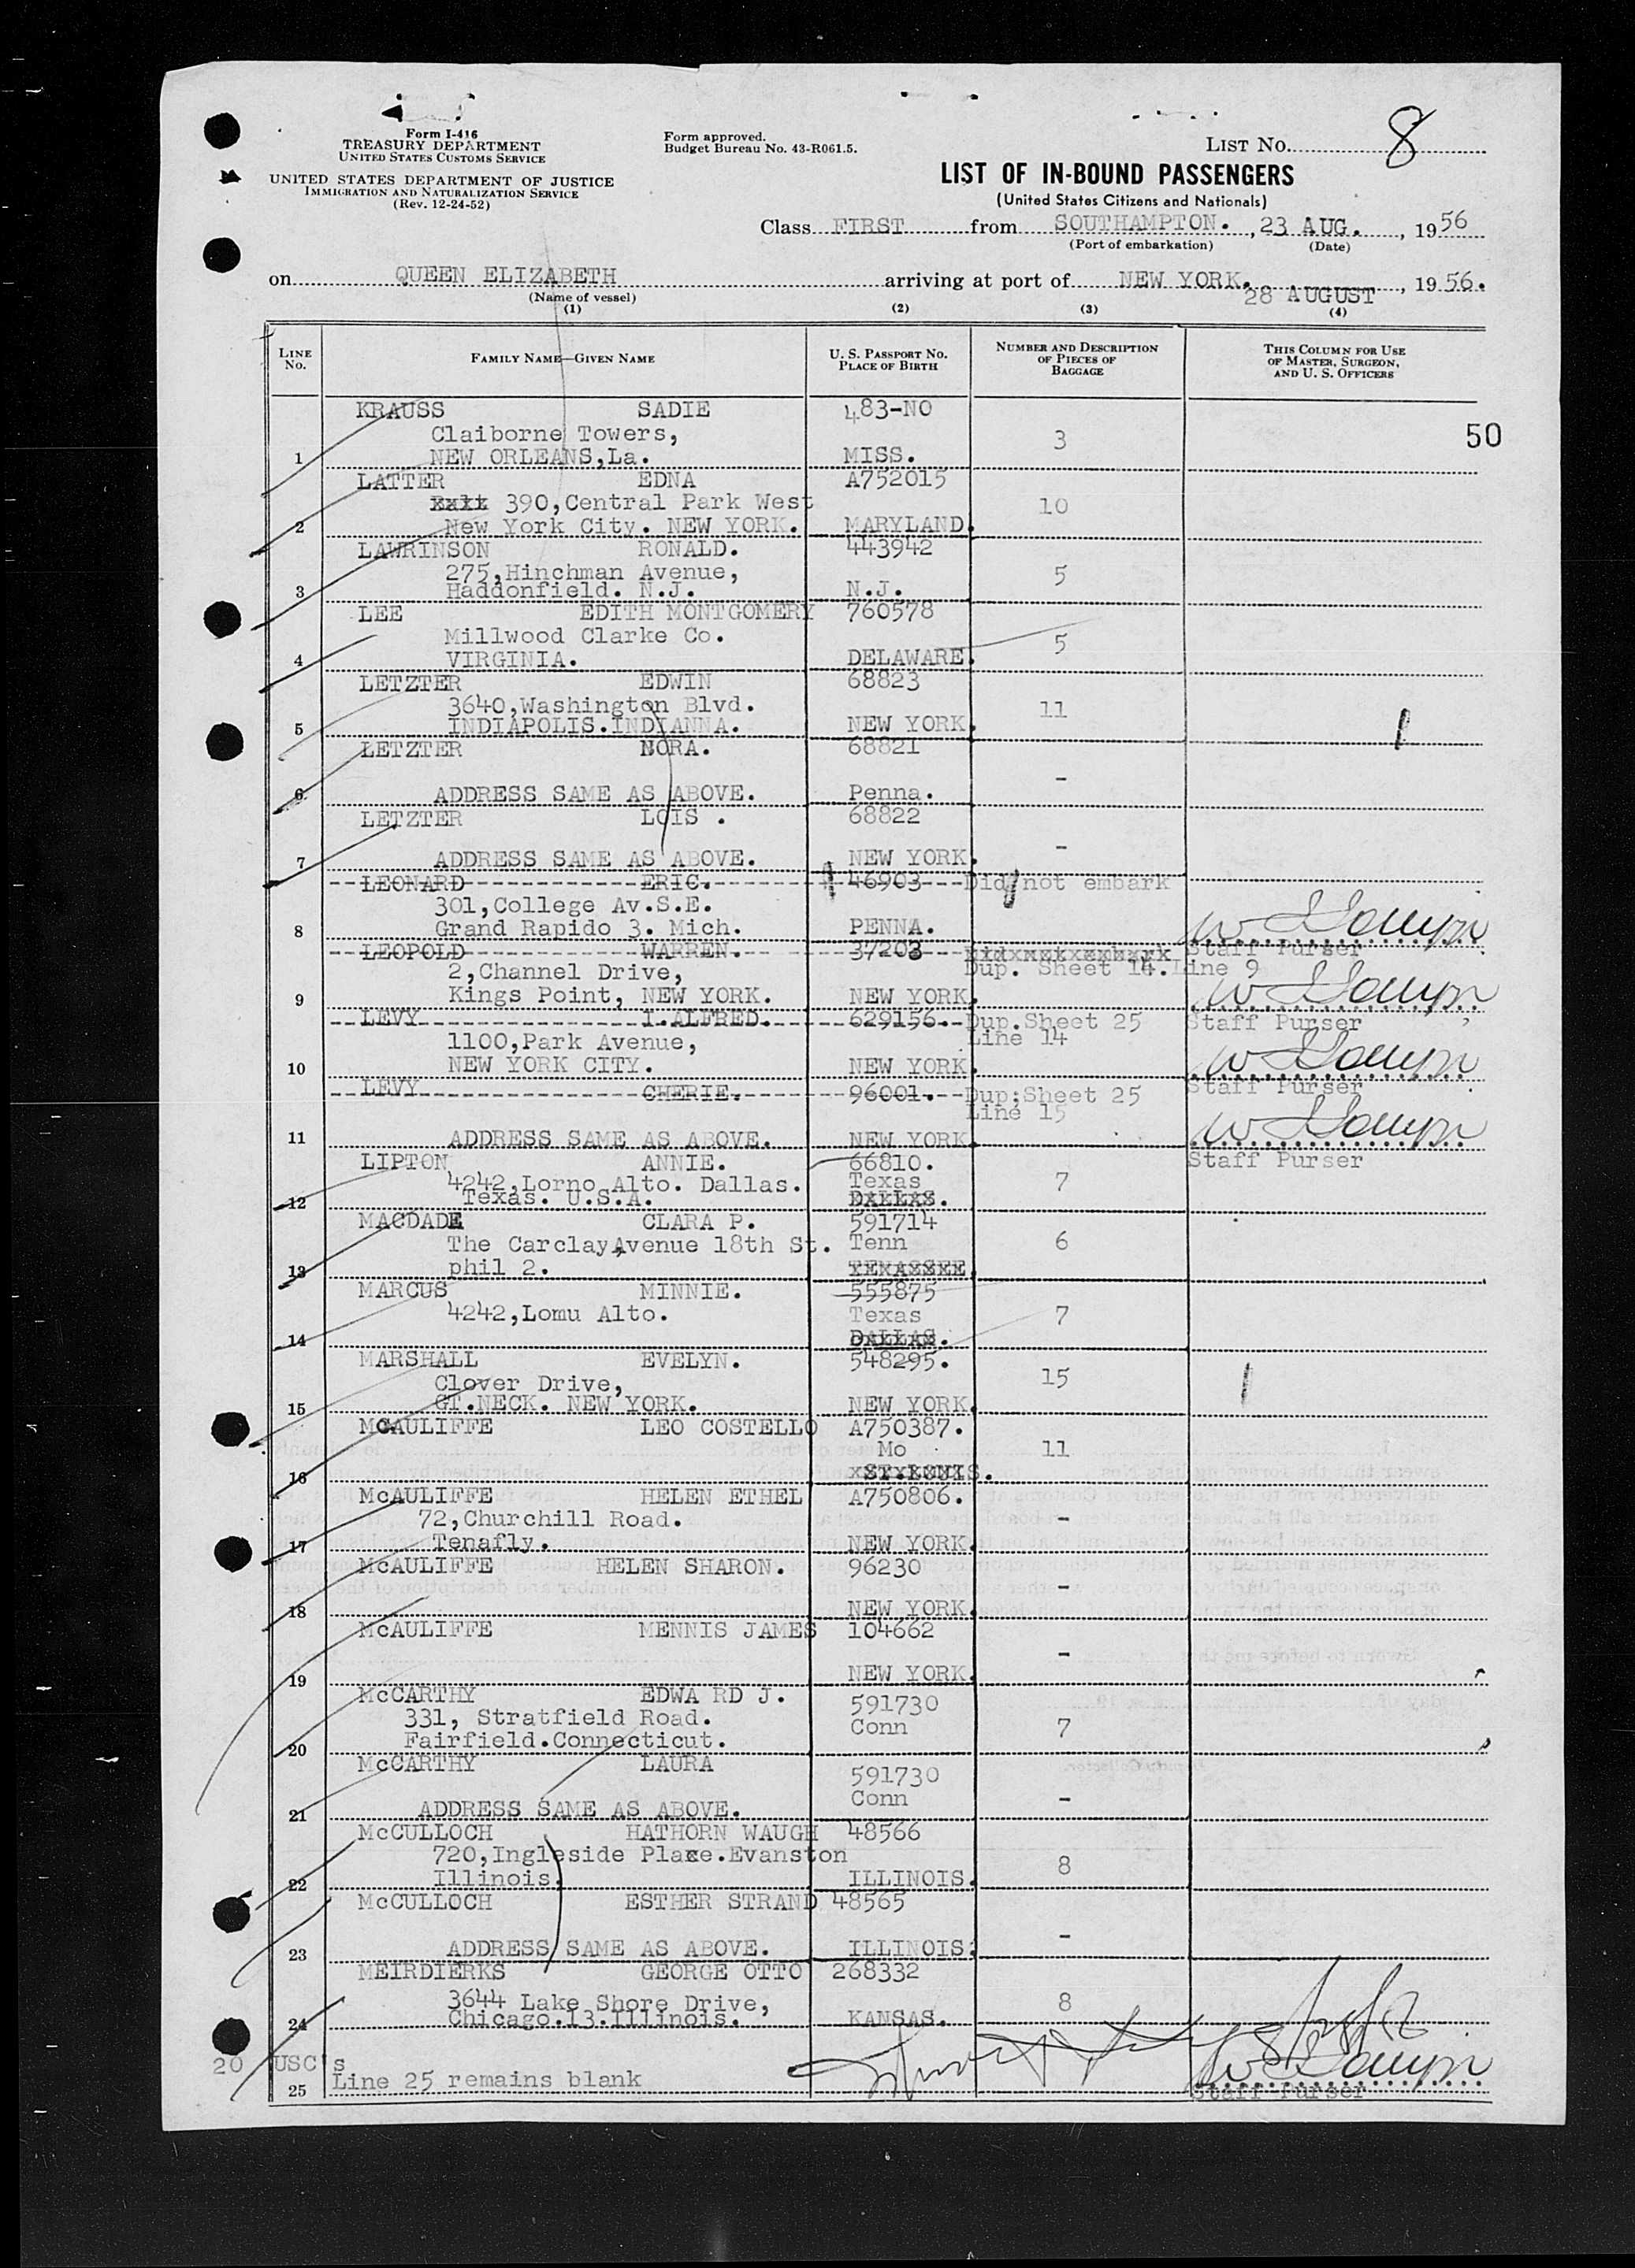 Form I-416
TREASURY DEPARTMENT
UNITED STATES CUSTOMS SERVICE
UNITED STATES DEPARTMENT OF JUSTICE
IMMIGRATION AND NATURALIZATION SERVICE
(Rev. 12-24-52)
Form approved.
Budget Bureau No. 43-R061.5.
LIST NO. 8
LIST OF IN-BOUND PASSENGERS
(United States Citizens and Nationals)
Class FIRST from SOUTHAMPTON. , 23 AUG. , 1956
(Port of embarkation) (Date)
on QUEEN ELIZABETH arriving at port of NEW YORK. 28 AUGUST , 1956.
(Name of vessel)
(1) (2) (3) (4)
LINE No. FAMILY NAME—GIVEN NAME U. S. PASSPORT NO. PLACE OF BIRTH NUMBER AND DESCRIPTION OF PIECES OF BAGGAGE THIS COLUMN FOR USE OF MASTER, SURGEON, AND U. S. OFFICERS
KRAUSS SADIE 483-NO
Claiborne Towers, 3 50
1 NEW ORLEANS,La. MISS.
LATTER EDNA A752015
390,Central Park West 10
2 New York City. NEW YORK. MARYLAND.
LAWRINSON RONALD. 443942
275,Hinchman Avenue, 5
3 Haddonfield. N.J. N.J.
LEE EDITH MONTGOMERY 760578
Millwood Clarke Co. 5
4 VIRGINIA. DELAWARE.
LETZTER EDWIN 68823
3640,Washington Blvd. 11
5 INDIAPOLIS.INDIANNA. NEW YORK.
LETZTER NORA. 68821
-
6 ADDRESS SAME AS ABOVE. Penna.
LETZTER LOIS . 68822
-
7 ADDRESS SAME AS ABOVE. NEW YORK.
LEONARD ERIC. 46903 Did not embark
301,College Av.S.E.
8 Grand Rapido 3. Mich. PENNA.
LEOPOLD WARREN. 37203 Staff Purser
2,Channel Drive, Dup. Sheet 14.Line 9
9 Kings Point, NEW YORK. NEW YORK.
LEVY I.ALFRED. 629156. Dup.Sheet 25 Staff Purser
1100,Park Avenue, Line 14
10 NEW YORK CITY. NEW YORK.
LEVY CHERIE. 96001. Dup:Sheet 25 Staff Purser
Line 15
11 ADDRESS SAME AS ABOVE. NEW YORK.
LIPTON ANNIE. 66810. Staff Purser
4242,Lorno Alto. Dallas. Texas 7
12 Texas. U.S.A. DALLAS.
MACDADE CLARA P. 591714
The Carclay,Avenue 18th St. Tenn 6
13 phil 2. TENASSEE.
MARCUS MINNIE. 555875
4242,Lomu Alto. Texas 7
14 DALLAS.
MARSHALL EVELYN. 548295.
Clover Drive, 15
15 GT.NECK. NEW YORK. NEW YORK.
MCAULIFFE LEO COSTELLO A750387.
Mo 11
16 ST.LOUIS.
McAULIFFE HELEN ETHEL A750806.
72,Churchill Road. -
17 Tenafly. NEW YORK.
McAULIFFE HELEN SHARON. 96230
-
18 NEW YORK.
McAULIFFE MENNIS JAMES 104662
-
19 NEW YORK.
McCARTHY EDWA RD J. 591730
331, Stratfield Road. Conn 7
20 Fairfield.Connecticut.
McCARTHY LAURA 591730
Conn -
21 ADDRESS SAME AS ABOVE.
McCULLOCH HATHORN WAUGH 48566
720,Ingleside Place.Evanston 8
22 Illinois. ILLINOIS.
McCULLOCH ESTHER STRAND 48565
-
23 ADDRESS SAME AS ABOVE. ILLINOIS.
MEIRDIERKS GEORGE OTTO 268332
3644 Lake Shore Drive, 8
24 Chicago.13.Illinois. KANSAS.
20 USC's
25 Line 25 remains blank Staff Purser